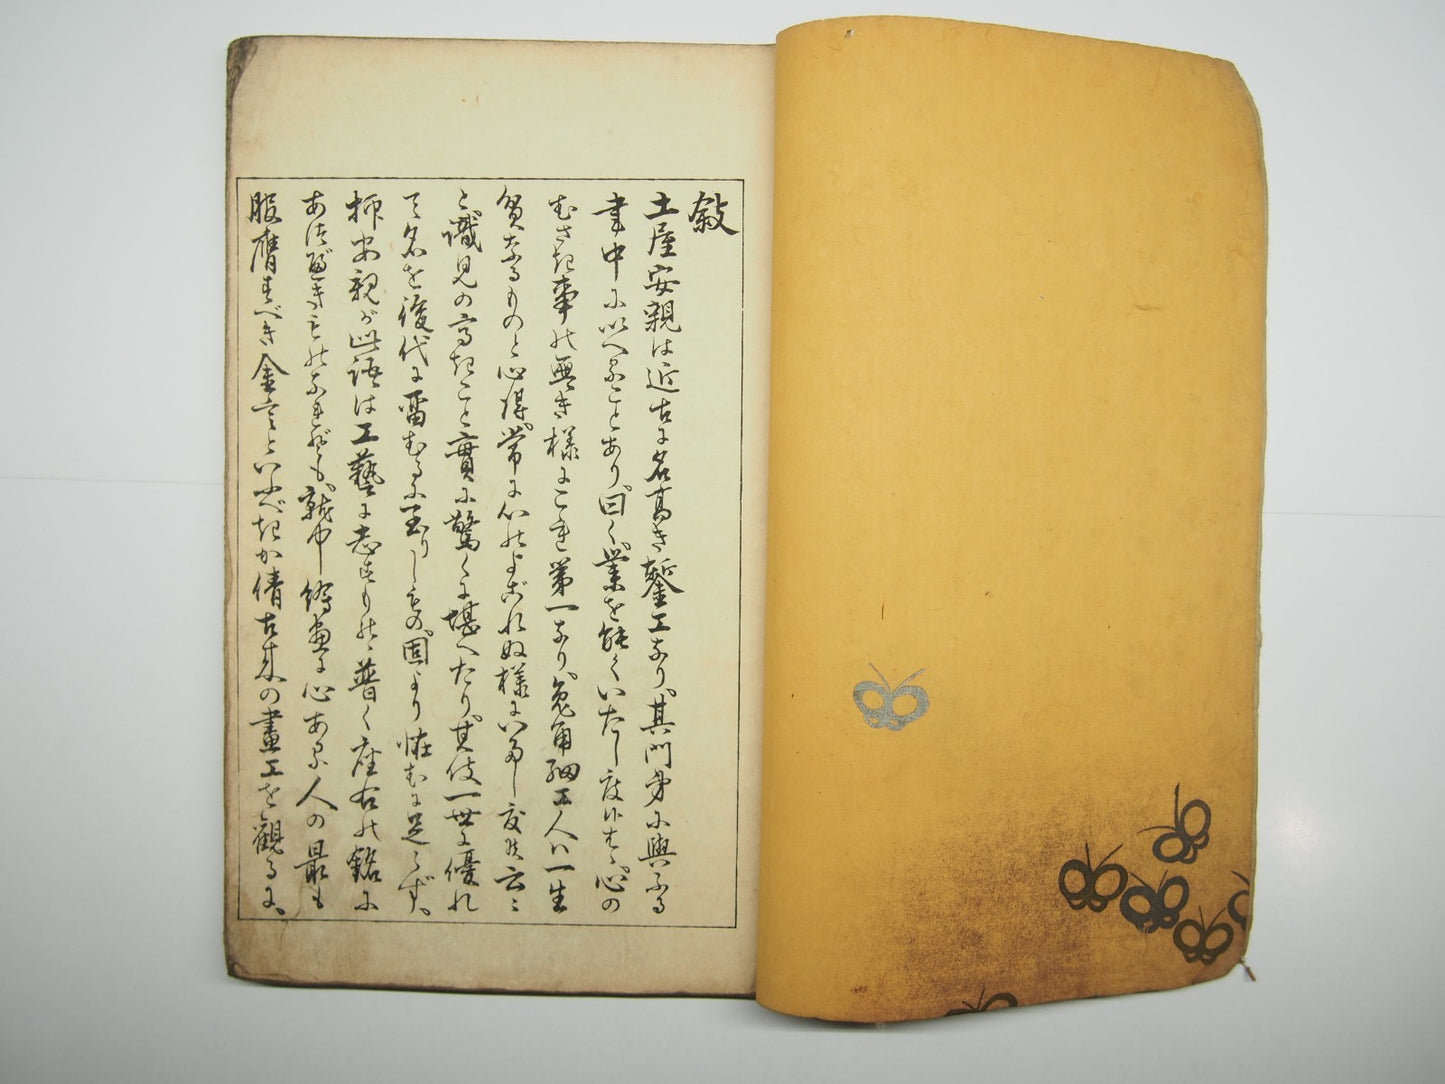 敍
土屋安親は近古に名高き鏨工なり、其門弟に與ふる
書中にいへることあり、曰く、業を能くいたし度候はゞ、心の
むさき事の無き様にこれ第一なり、兎角細工人ハ一生
貧なるものと心得、常に心のよごれぬ様にいたし度候云々
と、識見の高きこと實に驚くに堪へたり、其伎一世に優れ
て名を後代に留むるに至りしもの、固より怪むに足らず、
抑安親が此語は工藝に志すもの、普く座右の銘に
あつべきものなれども、就中繪畫に心ある人の最も
服膺すべき金言といふべきか倩古来の畫工を觀るに、